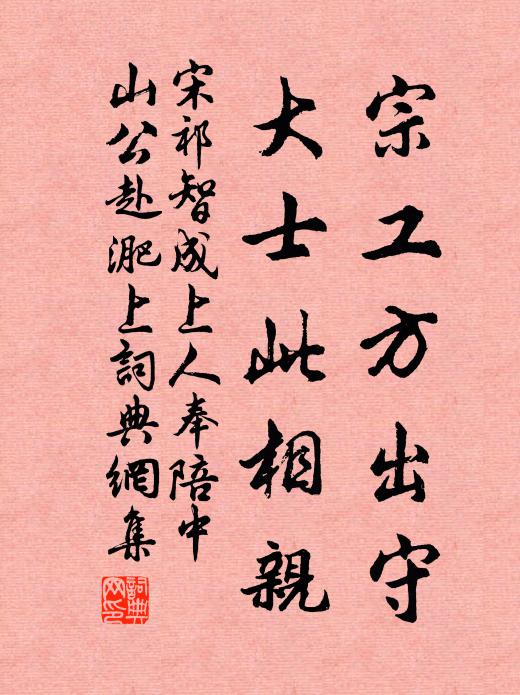 宗工方出守
大士此相親
宋祁智成上人奉陪中
山公赴淝上詞典網集
詞典網印